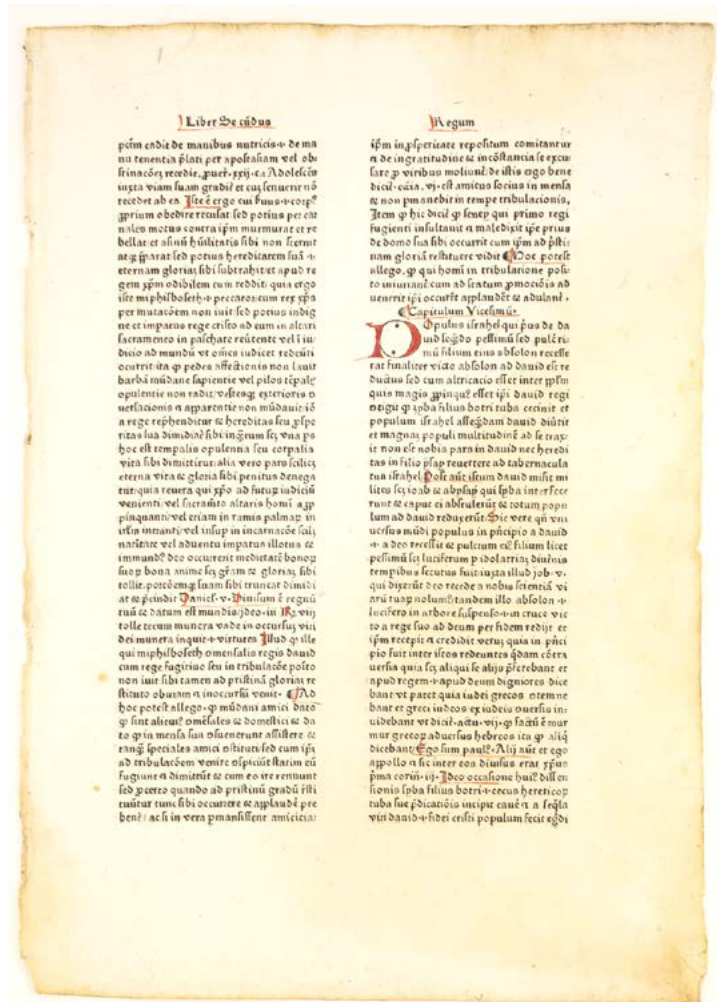 Liber Se cūdus
Regum
pctm cadit de manibus nutricis·i· de ma
nu tenentia plati per apostasiam vel ob
stinacōez recedie. ꝓuer·xxij·ca Adolescēs
iuxta viam suam gradiē et cuz senuerit nō
recedet ab ea Iste ē ergo cui
ꝓprium obedire recusat sed potius per car
nales motus contra ipm murmurat et re
bellat et asinū hūilitatis sibi non sternit
atqz pparat sed potius hereditatem suā ·i·
eternam gloriaz sibi subtrahit et apud re
gem xpm odibilem cum reddit quia ergo
iste miphilboseth·i· peccator cum rex xps
per mutacōem non iuit sed potius indig
ne et impatus rege cristo ad eum in altari
sacramento in paschate
dicio ad mundū vt omēs iudicet redeūti
occurrit ita ꝙ pedes affectionis non lauit
barbā mūdane sapientie vel pilos tēpalꝭ
opulentie non radit vestesqz exterioris
uersacionis a apparentie non mūdauit iō
a rege rephenditur & hereditas seu ꝓspe
ritas sua dimidiaē sibi ingrum scz vna ps
hoc est tempalis opulentia seu corpalis
vita sibi dimittitur alia vero pars scilicz
eterna vita & gloria sibi penitus denega
tur quia reuera qui xpo ad futuꝝ iudiciū
venienti vel sacramēto altaris homi appinquanti
vel etiam in ramis palmaꝝ in
irlm intranti vel insup in incarnacōe scilz
natiuitate vel aduentu impatus illotus &
immundꝰ deo occurrerit medietatē bonoꝝ
suoꝝ bona anime scz gram & gloriaz sibi
tollit. porcōemqz suam sibi truncat dimidi
at & pscindit Daniel·v· Diuisum ē regnū
tuū & datum est mundis ideo·iij· R·viij
tolle tecum munera vade in occursuz viri
dei munera inquit·i· virtutes Illud ꝙ ille
qui miphilboseth omensalis regis dauid
cum rege fugitiuo seu in tribulacōe posito
non iuit sibi tamen ad pristinā gloriaz re
stituto obuiam a inoccursū venit· Ad
hoc potest allego· ꝙ mūdani amici dato
ꝙ sint alicuiꝰ omēsales & domestici & da
to ꝙ in mensa sua osuenerunt assistere &
tanqz speciales amici ostituti sed cum ipz
ad tribulacōem venire ospiciūt statim eū
fugiunt a dimittūt & cum eo ire rennunt
sed ꝓcerto quando ad pristinū gradū rsti
tuūtur tunc sibi occurrere & applaudē pre
benē ac si in vera pmansissent amicicia
ipm in ꝓsperitate repositum comitantur
a de ingratitudine & incōstancia se excu
sare ꝓ viribus moliunē de istis ergo bene
diciē cāia· vj· est amicus socius in mensa
& non pmanebit in tempe tribulacionis,
Item ꝙ hic diciē ꝙ semey qui primo regi
fugienti insultauit a maledixit ipē prius
de domo sua sibi occurrit cum ipm ad psti
nam gloriā restituere vidit Hoc potest
allego. ꝙ qui homi in tribulatione posi
to iniuriantē cum ad statum ꝓmociōis ad
uenerit ipi occurrē applaudē & adulanē·
Capitulum Vicesimū·
Populus israhel qui pus de da
uid legēdo pessimū sed pulcri
mū filium eius absolon recesse
rat finaliter victo absolon ad dauid est re
ductus sed cum altricacio esset inter pplm
quis magis ꝓpinquꝰ esset ipi dauid regi
otigit ꝙ syba filius botri tuba cecinit et
populum israhel asseqdam dauid diūtit
et magnaz populi multitudinē ad se trax
it non est nobis pars in dauid nec heredi
tas in filio ysay reuertere ad tabernacula
tua israhel Post aūt istum dauid misit mi
lites scz ioab & abysay qui syba interfece
runt & caput ei abstulerūt & totum popu
lum ad dauid reduxerūt Sic vere qn vni
uersus mūdi populus in pncipio a dauid
·i· a deo recessit & pulcrum eiꝰ filium licet
pessimū scz luciferum p idolatriaz diuinis
tempibus secutus fuit iuxta illud job·v·
qui dixerūt deo recede a nobis scientiā vi
arū tuaꝝ nolumꝰ tandem illo absolon·i·
lucifero in arbore suspenso·i· in cruce vic
to a rege suo ad deum per fidem redijt et
ipm recepit a credidit veruz quia in pnci
pio fuit inter istos redeuntes qdam cōtra
uersia quia scz aliqui se alijs pferebant et
apud regem·i· apud deum digniores dice
bant vt patet quia iudei grecos otemne
bant et greci iudeos ex iudeis ouersis in
uidebant vt diciē·actu·vij·ꝙ factū ē mur
mur grecoꝝ aduersus hebreos ita ꝙ aliq
dicebant Ego sum pauli. Alij aūt et ego
appollo a sic inter eos diuisus erat xpus
pma corin·iij· Ideo occasione huiꝰ dissen
sionis syba filius botri·i· cecus hereticoꝝ
tuba sue pdicatiōis incipit canē a a seqla
viri dauid·i· fidei cristi populum fecit egdi